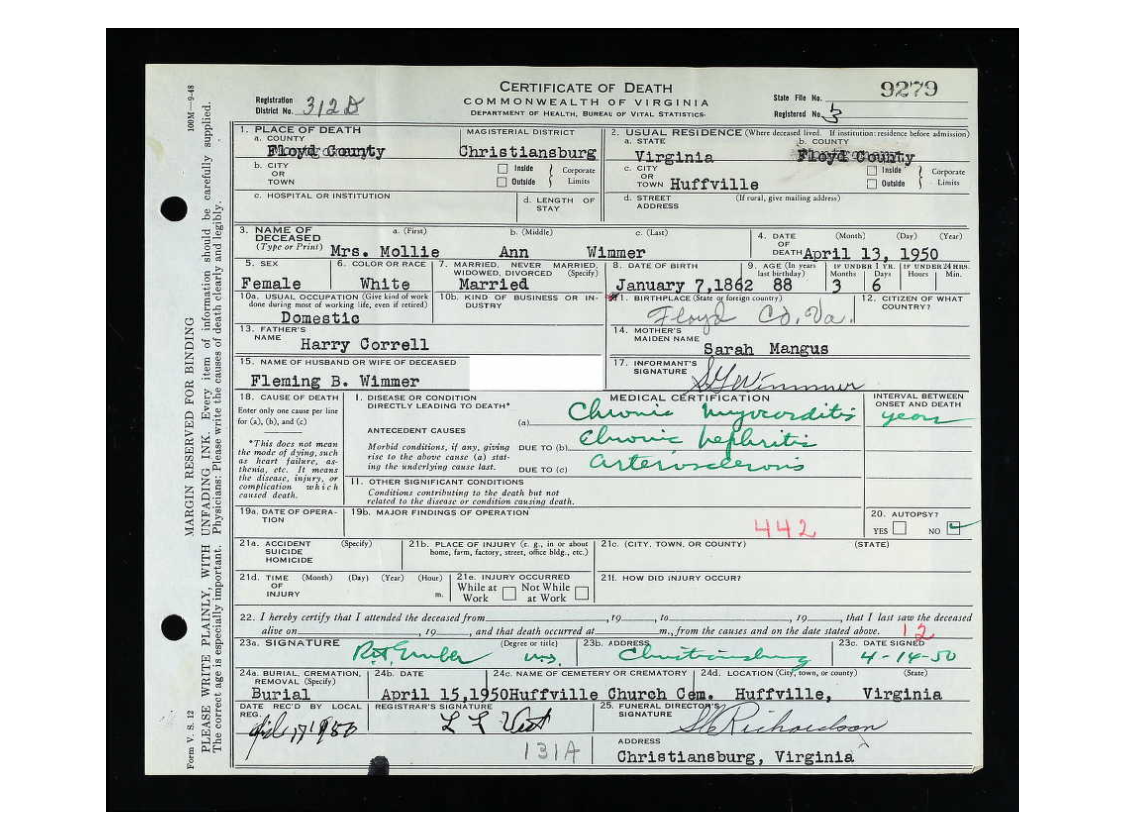 CERTIFICATE OF DEATH
COMMONWEALTH OF VIRGINIA
DEPARTMENT OF HEALTH, BUREAU OF VITAL STATISTICS
Registration District No. 312B
State File No. 9279
Registered No. 3
100M—9-48
MARGIN RESERVED FOR BINDING
PLEASE WRITE PLAINLY, WITH UNFADING INK. Every item of information should be carefully supplied.
The correct age is especially important. Physicians: Please write the causes of death clearly and legibly.
Form V. S. 12
1. PLACE OF DEATH
a. COUNTY
Floyd County
MAGISTERIAL DISTRICT
Christiansburg
2. USUAL RESIDENCE (Where deceased lived. If institution: residence before admission)
a. STATE
Virginia
b. COUNTY
Floyd County
b. CITY OR TOWN
Inside
Outside
Corporate Limits
c. CITY OR TOWN Huffville
Inside
Outside
Corporate Limits
c. HOSPITAL OR INSTITUTION
d. LENGTH OF STAY
d. STREET ADDRESS
(If rural, give mailing address)
3. NAME OF DECEASED
(Type or Print)
a. (First)
b. (Middle)
c. (Last)
Mrs. Mollie Ann Wimmer
4. DATE OF DEATH
(Month) (Day) (Year)
April 13, 1950
5. SEX
Female
6. COLOR OR RACE
White
7. MARRIED, NEVER MARRIED, WIDOWED, DIVORCED (Specify)
Married
8. DATE OF BIRTH
January 7,1862
9. AGE (In years last birthday)
88
IF UNDER 1 YR. Months Days
3 6
IF UNDER 24 HRS. Hours Min.
10a. USUAL OCCUPATION (Give kind of work done during most of working life, even if retired)
Domestic
10b. KIND OF BUSINESS OR INDUSTRY
11. BIRTHPLACE (State or foreign country)
Floyd Co. Va.
12. CITIZEN OF WHAT COUNTRY?
13. FATHER'S NAME
Harry Correll
14. MOTHER'S MAIDEN NAME
Sarah Mangus
15. NAME OF HUSBAND OR WIFE OF DECEASED
Fleming B. Wimmer
17. INFORMANT'S SIGNATURE
Wimmer
18. CAUSE OF DEATH
Enter only one cause per line for (a), (b), and (c)
*This does not mean the mode of dying, such as heart failure, asthenia, etc. It means the disease, injury, or complication which caused death.
MEDICAL CERTIFICATION
I. DISEASE OR CONDITION DIRECTLY LEADING TO DEATH*
(a) Chronic myocorditis
INTERVAL BETWEEN ONSET AND DEATH
years
ANTECEDENT CAUSES
Morbid conditions, if any, giving rise to the above cause (a) stating the underlying cause last.
DUE TO (b) Chronic nephritis
DUE TO (c) arterosclerosis
II. OTHER SIGNIFICANT CONDITIONS
Conditions contributing to the death but not related to the disease or condition causing death.
19a. DATE OF OPERATION
19b. MAJOR FINDINGS OF OPERATION
442
20. AUTOPSY?
YES NO
21a. ACCIDENT SUICIDE HOMICIDE
(Specify)
21b. PLACE OF INJURY (e. g., in or about home, farm, factory, street, office bldg., etc.)
21c. (CITY, TOWN, OR COUNTY)
(STATE)
21d. TIME OF INJURY
(Month) (Day) (Year) (Hour)
m.
21e. INJURY OCCURRED
While at Work
Not While at Work
21f. HOW DID INJURY OCCUR?
22. I hereby certify that I attended the deceased from , 19 , to , 19 , that I last saw the deceased
alive on , 19 , and that death occurred at m., from the causes and on the date stated above.
12
23a. SIGNATURE
(Degree or title)
M.D.
23b. ADDRESS
Christiansburg
23c. DATE SIGNED
4-14-50
24a. BURIAL, CREMATION, REMOVAL (Specify)
Burial
24b. DATE
April 15,1950
24c. NAME OF CEMETERY OR CREMATORY
Huffville Church Cem.
24d. LOCATION (City, town, or county) (State)
Huffville, Virginia
DATE REC'D BY LOCAL REG.
April 17 1950
REGISTRAR'S SIGNATURE
25. FUNERAL DIRECTOR'S SIGNATURE
Richardson
131A
ADDRESS
Christiansburg, Virginia